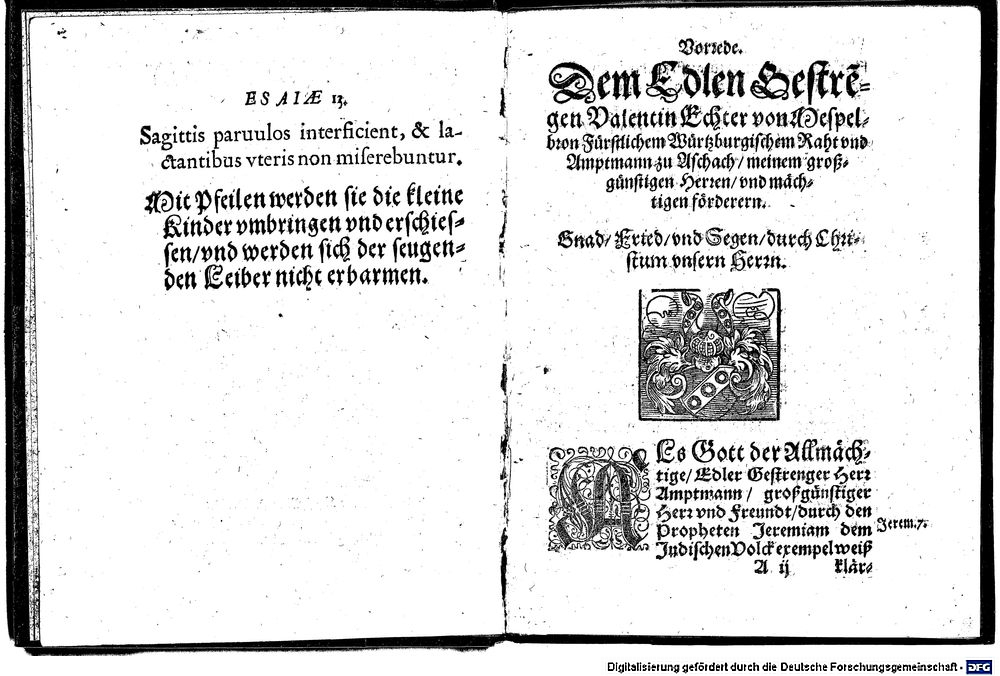 ESAIÆ 13.
Sagittis paruulos interficient, & la-
ctantibus vteris non miserebuntur.
Mit Pfeilen werden sie die kleine
Kinder vmbringen vnd erschies-
sen/vnd werden sich der seugen-
den Leiber nicht erbarmen.
Vorrede.
Dem Edlen Gestrē-
gen Valentin Echter von Mespel-
bron Fürstlichem Würtzburgischem Raht vnd
Amptmann zu Aschach/ meinem groß-
günstigen Herren/ vnd mäch-
tigen förderern.
Gnad/ Fried/ vnd Segen/ durch Chri-
stum vnsern Herrn.
ALs Gott der Allmäch-
tige/ Edler Gestrenger Herr
Amptmann/ großgünstiger
Herr vnd Freundt/ durch den
Propheten Jeremiam dem
Jüdischen Volck exempelweiß
Jerem. 7.
A ij klär-
Digitalisierung gefördert durch die Deutsche Forschungsgemeinschaft - DFG